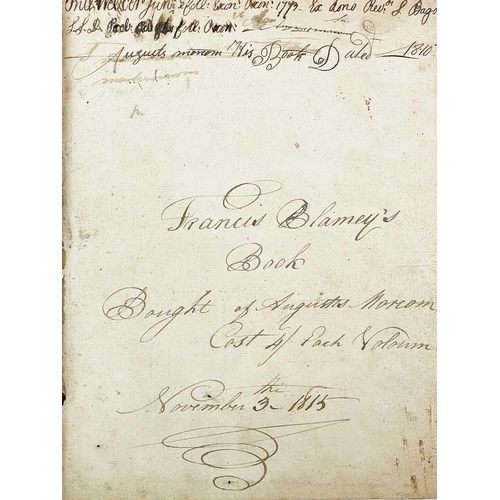 Jun: è Coll: Exon: Oxon: 1773 Ex dono Revdi L Bago
Coll: Oxon:
Augusts morcom His Book Dated 1810
Francis Blamey's
Book
Bought of Augusts Morcom
Cost 4/ Each Voloum
November the 3 - 1815